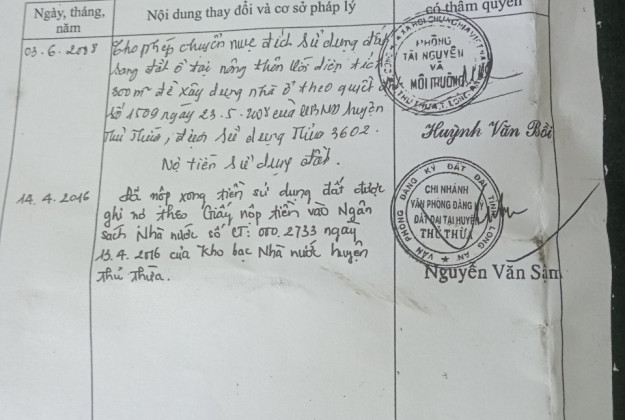 Ngày, tháng, năm
Nội dung thay đổi và cơ sở pháp lý
có thẩm quyền
03.6.2008
Cho phép chuyển mục đích sử dụng đất
sang đất ở tại nông thôn với diện tích
300 m² để xây dựng nhà ở theo quyết
số 1509 ngày 23.5.2008 của UBND huyện
Thủ Thừa, đích sử dụng Thửa 3602.
Nợ tiền sử dụng đất.
PHÒNG
TÀI NGUYÊN
VÀ
MÔI TRƯỜNG
H. THỦ THỪA T. LONG AN
Huỳnh Văn Bồi
14.4.2016
Đã nộp xong tiền sử dụng đất được
ghi nợ theo Giấy nộp tiền vào Ngân
sách Nhà nước số CT: 000.2733 ngày
13.4.2016 của Kho bạc Nhà nước huyện
Thủ Thừa.
VĂN PHÒNG ĐĂNG KÝ ĐẤT ĐAI TỈNH LONG AN
CHI NHÁNH
VĂN PHÒNG ĐĂNG KÝ
ĐẤT ĐAI TẠI HUYỆN
THỦ THỪA
Nguyễn Văn Sản